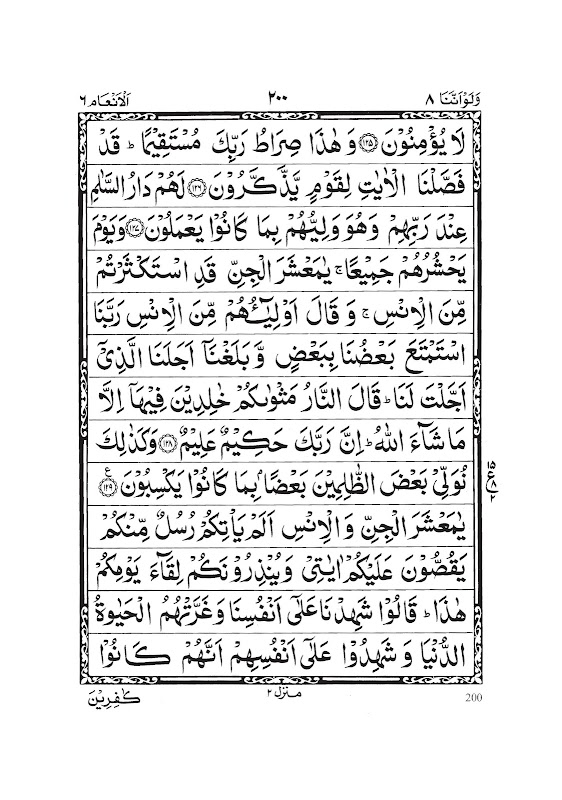 وَلَوْاَنَّنَا ۸
۲۰۰
اَلْاَنْعَام ۶
لَا يُؤْمِنُوْنَ ﴿۱۲۵﴾ وَ هٰذَا صِرَاطُ رَبِّكَ مُسْتَقِيْمًا ؕ قَدْ
فَصَّلْنَا الْاٰيٰتِ لِقَوْمٍ يَّذَّكَّرُوْنَ ﴿۱۲۶﴾ لَهُمْ دَارُ السَّلٰمِ
عِنْدَ رَبِّهِمْ وَهُوَ وَلِيُّهُمْ بِمَا كَانُوْا يَعْمَلُوْنَ ﴿۱۲۷﴾ وَيَوْمَ
يَحْشُرُهُمْ جَمِيْعًا ۚ يٰمَعْشَرَ الْجِنِّ قَدِ اسْتَكْثَرْتُمْ
مِّنَ الْاِنْسِ ۚ وَ قَالَ اَوْلِيٰٓـُٔهُمْ مِّنَ الْاِنْسِ رَبَّنَا
اسْتَمْتَعَ بَعْضُنَا بِبَعْضٍ وَّ بَلَغْنَاۤ اَجَلَنَا الَّذِىْۤ
اَجَّلْتَ لَنَا ؕ قَالَ النَّارُ مَثْوٰىكُمْ خٰلِدِيْنَ فِيْهَاۤ اِلَّا
مَا شَآءَ اللّٰهُ ؕ اِنَّ رَبَّكَ حَكِيْمٌ عَلِيْمٌ ﴿۱۲۸﴾ وَكَذٰلِكَ
نُوَلِّىْ بَعْضَ الظّٰلِمِيْنَ بَعْضًاۢ بِمَا كَانُوْا يَكْسِبُوْنَ ﴿۱۲۹﴾ ع
۱۵ ع ۸ ۲
يٰمَعْشَرَ الْجِنِّ وَ الْاِنْسِ اَلَمْ يَاْتِكُمْ رُسُلٌ مِّنْكُمْ
يَقُصُّوْنَ عَلَيْكُمْ اٰيٰتِىْ وَيُنْذِرُوْنَكُمْ لِقَآءَ يَوْمِكُمْ
هٰذَا ؕ قَالُوْا شَهِدْنَا عَلٰٓى اَنْفُسِنَا وَ غَرَّتْهُمُ الْحَيٰوةُ
الدُّنْيَا وَ شَهِدُوْا عَلٰٓى اَنْفُسِهِمْ اَنَّهُمْ كَانُوْا
200
منزل ۲
كٰفِرِيْنَ